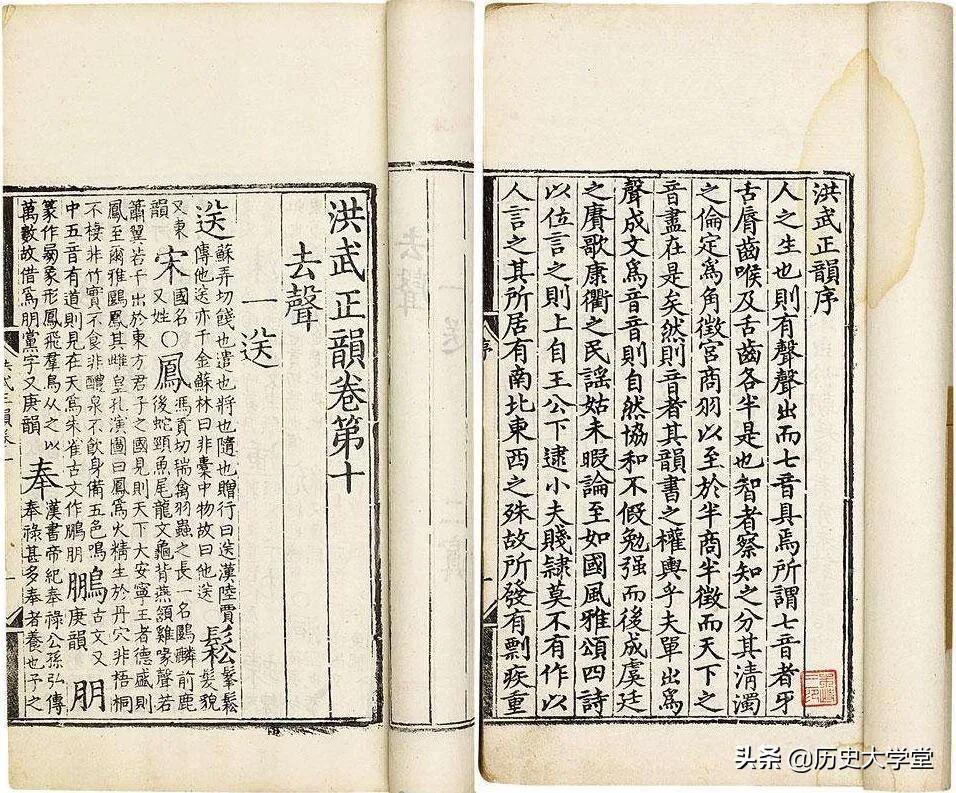 洪武正韻序
人之生也則有聲聲出而七音具焉所謂七音者牙
舌脣齒喉及舌齒各半是也智者察知之分其清濁
之倫定爲角徵宮商羽以至於半商半徵而天下之
音盡在是矣然則音者其韻書之權輿乎夫單出爲
聲成文爲音音則自然協和不假勉强而後成虞廷
之賡歌康衢之民謠姑未暇論至如國風雅頌四詩
以位言之則上自王公下逮小夫賤隸莫不有作以
人言之其所居有南北東西之殊故所發有剽疾重
洪武正韻卷第十
去聲
一送
送蘇弄切餞也遣也將也隨也贈行曰送漢陸賈
傳他送亦千金蘇林曰非囊中物故曰他送鬆鬆髮貌
又東韻宋國名又姓○鳳馮貢切瑞禽羽蟲之長一名鶠麟前鹿
後蛇頸魚尾龍文龜背燕頷雞喙聲若
簫翼若干出於東方君子之國見則天下大安寧王者德盛則
鳳至爾雅鶠鳳其雌皇孔演圖曰鳳爲火精生於丹穴非梧桐
不棲非竹實不食非醴泉不飲身備五色鳴
中五音有道則見在天爲朱雀古文作鵬朋鵬庚韻古文又朋
篆作象形鳳飛羣鳥從之以
萬數故借爲朋黨字又庚韻奉漢書帝紀奉祿公孫弘傳
奉祿甚多奉者養也子之
头条 @历史大学堂